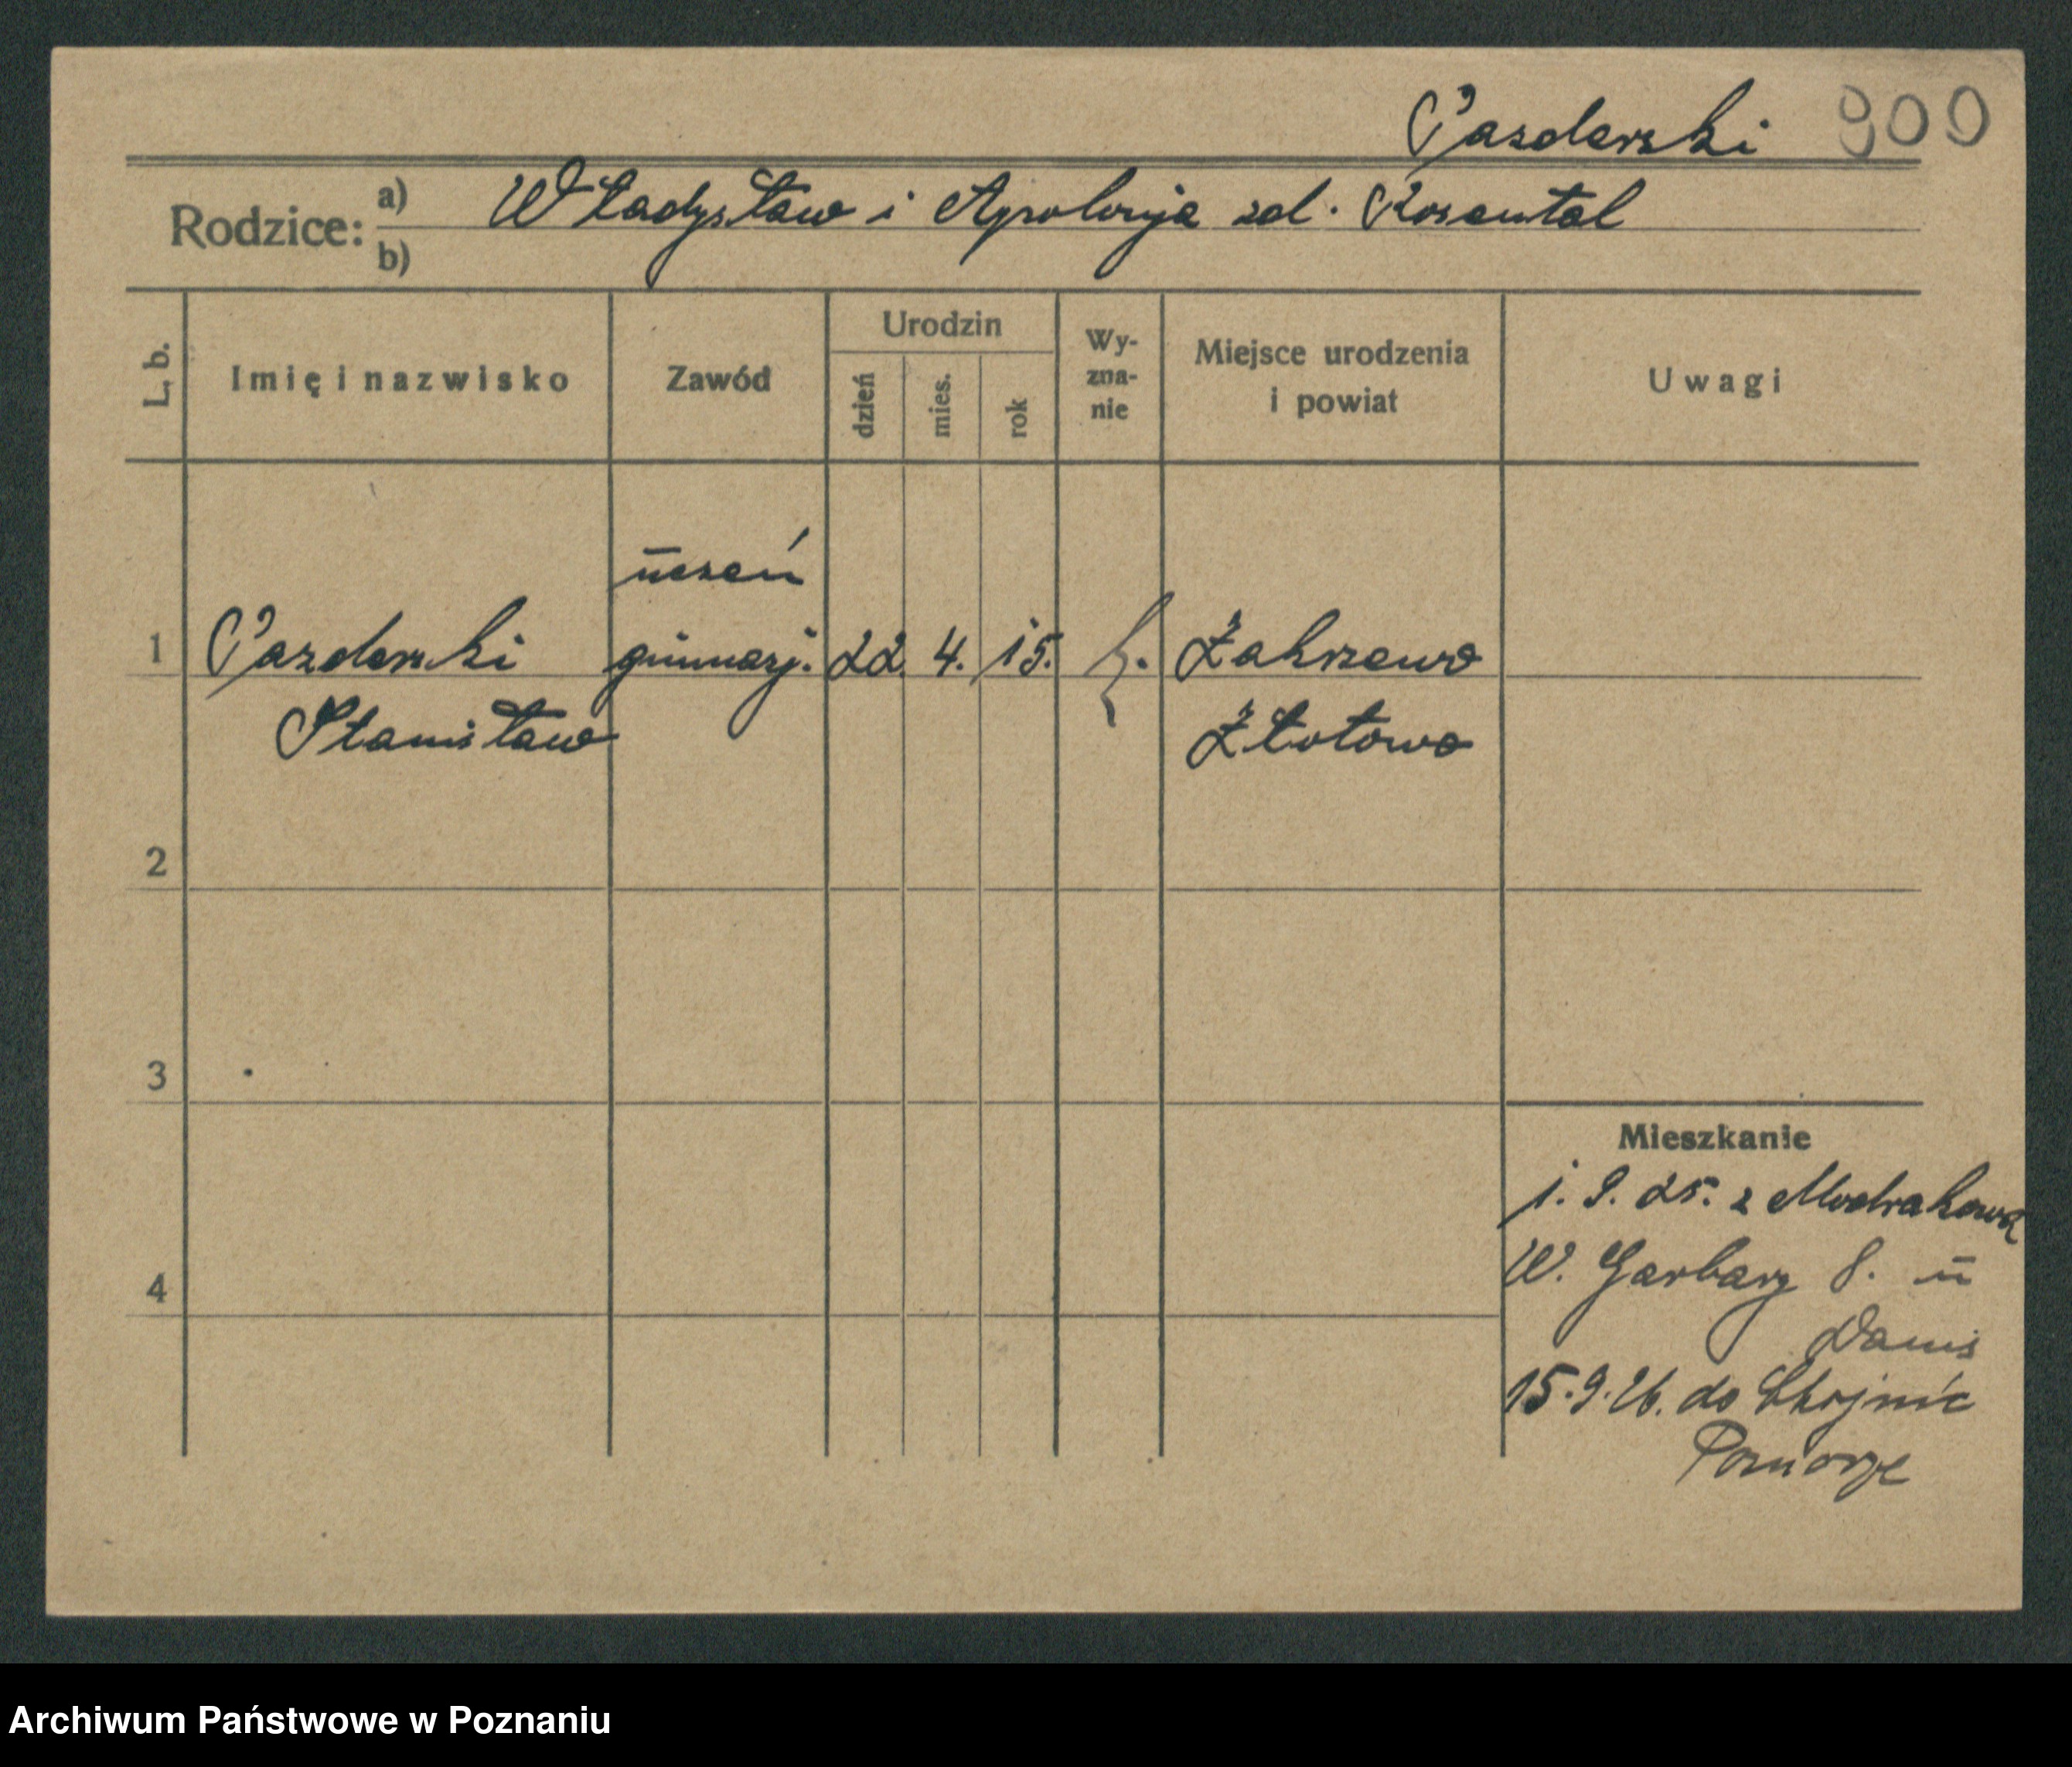 Pazderski 900
Rodzice: a) Władysław i Apolonja zd. Rosental
b)
L. b.
Imię i nazwisko
Zawód
Urodzin
dzień
mies.
rok
Wy-
zna-
nie
Miejsce urodzenia
i powiat
Uwagi
uczeń
1 Pazderski gimnazj. 22. 4. 15. k. Zakrzewo
Stanisław Złotowo
2
3
4
Mieszkanie
1. 9. 25. z Modrakowa
W. Garbary 8. u
Danis
15.9.26. do Chojnic
Pomorze
Archiwum Państwowe w Poznaniu